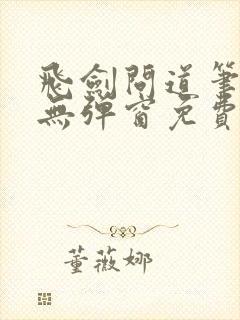 飛劍問道筆
無彈窗免費
董薇娜